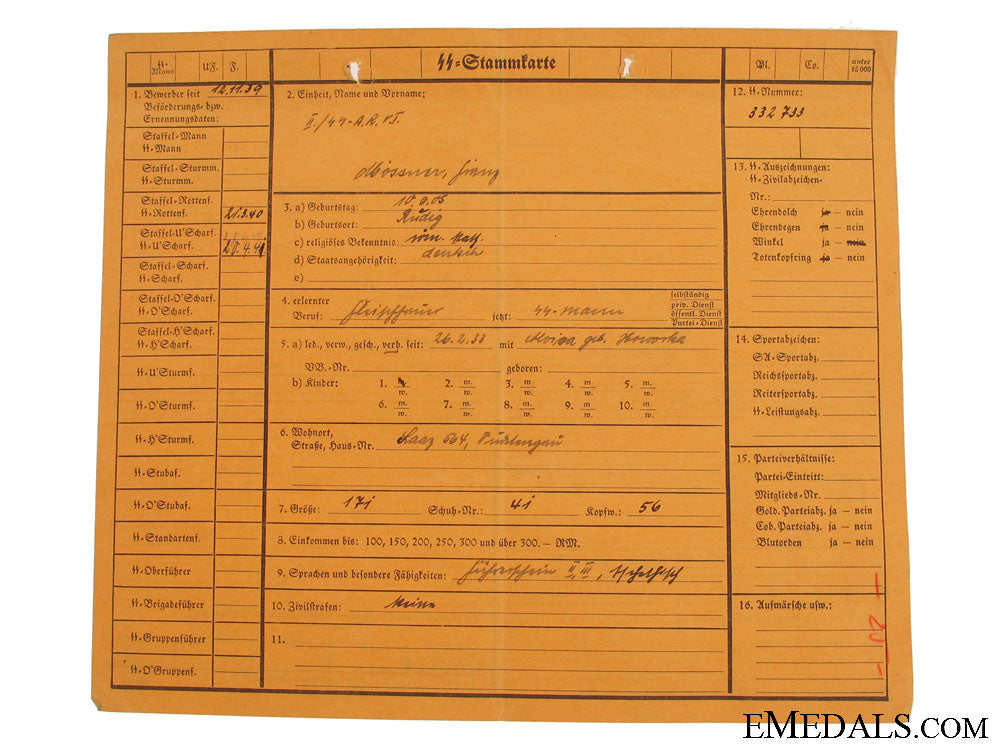 ᛋᛋ-Mann UF. F.
ᛋᛋ-Stammkarte
Bl. Co. unter 15 000
1. Bewerber seit 12.11.39
Beförderungs- bzw.
Ernennungsdaten:
Staffel-Mann
ᛋᛋ-Mann
Staffel-Sturmm.
ᛋᛋ-Sturmm.
Staffel-Rottenf.
ᛋᛋ-Rottenf. 21.3.40
Staffel-U'Scharf.
ᛋᛋ-U'Scharf. 20.4.41
Staffel-Scharf.
ᛋᛋ-Scharf.
Staffel-O'Scharf.
ᛋᛋ-O'Scharf.
Staffel-H'Scharf.
ᛋᛋ-H'Scharf.
ᛋᛋ-U'Sturmf.
ᛋᛋ-O'Sturmf.
ᛋᛋ-H'Sturmf.
ᛋᛋ-Stubaf.
ᛋᛋ-O'Stubaf.
ᛋᛋ-Standartenf.
ᛋᛋ-Oberführer
ᛋᛋ-Brigadeführer
ᛋᛋ-Gruppenführer
ᛋᛋ-O'Gruppenf.
2. Einheit, Name und Vorname:
II./ᛋᛋ-A.R.
Mössner, Franz
3. a) Geburtstag:
b) Geburtsort: Rudig
c) religiöses Bekenntnis: röm. kath.
d) Staatsangehörigkeit: deutsch
e)
4. erlernter
Beruf: Fleischhauer jetzt: ᛋᛋ-Mann
selbständig
priv. Dienst
öffentl. Dienst
Partei-Dienst
5. a) led., verw., gesch., verh. seit: 26.2.33 mit geb.
VB.-Nr. geboren:
b) Kinder: 1. m./w. 2. m./w. 3. m./w. 4. m./w. 5. m./w.
6. m./w. 7. m./w. 8. m./w. 9. m./w. 10. m./w.
6. Wohnort,
Straße, Haus-Nr. Saaz 564, Sudetengau
7. Größe: 171 Schuh-Nr.: 41 Kopfw.: 56
8. Einkommen bis: 100, 150, 200, 250, 300 und über 300.— RM.
9. Sprachen und besondere Fähigkeiten: Führerschein II, III, tschechisch
10. Zivilstrafen: Keine
11.
12. ᛋᛋ-Nummer:
332 733
13. ᛋᛋ-Auszeichnungen:
ᛋᛋ-Zivilabzeichen-
Nr.:
Ehrendolch ja — nein
Ehrendegen ja — nein
Winkel ja — nein
Totenkopfring ja — nein
14. Sportabzeichen:
SA-Sportabz.
Reichssportabz.
Reitersportabz.
ᛋᛋ-Leistungsabz.
15. Parteiverhältnisse:
Partei-Eintritt:
Mitglieds-Nr.
Gold. Parteiabz. ja — nein
Cob. Parteiabz. ja — nein
Blutorden ja — nein
16. Aufmärsche usw.:
EMEDALS.COM